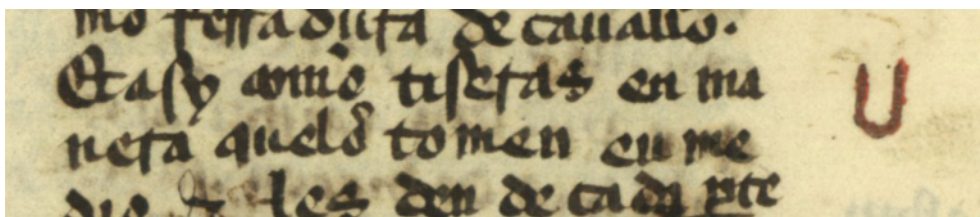 mo ferradura de cauallo.
Et asy com̃o tiseras en ma
nera quelõ tomen en me
dio & les den de cada p̱te
U